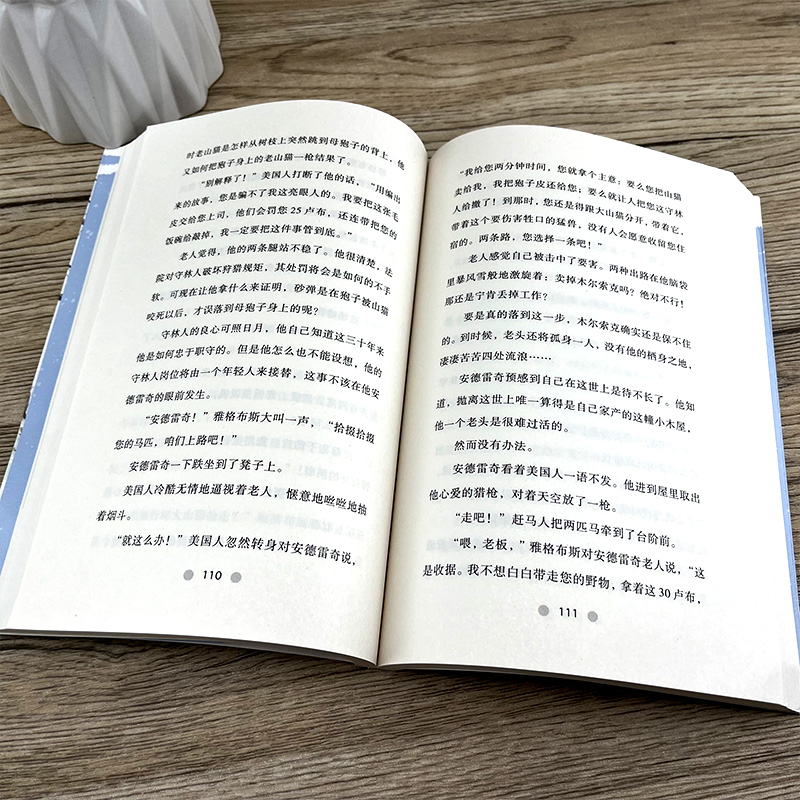 时老山猫是怎样从树枝上突然跳到母狍子的背上，他
又如何把狍子身上的老山猫一枪结果了。
“别解释了！”美国人打断了他的话，“用编出
来的故事，您是骗不了我这亮眼人的。我要把这张毛
皮交给您上司，他们会罚您 25 卢布，还连带把您的
饭碗给敲掉，我一定要把这件事管到底。”
老人觉得，他的两条腿站不稳了。他很清楚，法
院对守林人破坏狩猎规矩，其处罚将会是如何的不手
软。可现在让他拿什么来证明，砂弹是在狍子被山猫
咬死以后，才误落到母狍子身上的呢？
守林人的良心可照日月，他自己知道这三十年来
他是如何忠于职守的。但是他怎么也不能设想，他的
守林人岗位将由一个年轻人来接替，这事不该在他安
德雷奇的眼前发生。
“安德雷奇！”雅格布斯大叫一声，“拾掇拾掇
您的马匹，咱们上路吧！”
安德雷奇一下跌坐到了凳子上。
美国人冷酷无情地逼视着老人，惬意地咝咝地抽
着烟斗。
“就这么办！”美国人忽然转身对安德雷奇说，
110
“我给您两分钟时间，您就拿个主意：要么您把山猫
卖给我，我把狍子皮还给您；要么就让人把您这守林
人给撤了！到那时，您还是得跟大山猫分开，带着它，
带着这个要伤害牲口的猛兽，没有人会愿意收留您住
宿的。两条路，您选择一条吧！”
老人感觉自己被击中了要害。两种出路在他脑袋
里暴风雪般地激旋着；卖掉木尔索克吗？绝对不行！
那还是宁肯丢掉工作？
要是真的落到这一步，木尔索克确实还是保不住
的。到时候，老头还将孤身一人，没有他的栖身之地，
凄凄苦苦四处流浪……
安德雷奇预感到自己在这世上是待不长了。他知
道，抛离这世上唯一算得是自己家产的这幢小木屋，
他一个老头是很难过活的。
然而没有办法。
安德雷奇看着美国人一语不发。他进到屋里取出
他心爱的猎枪，对着天空放了一枪。
“走吧！”赶马人把两匹马牵到了台阶前。
“喂，老板，”雅格布斯对安德雷奇老人说，“这
是收据。我不想白白带走您的野物，拿着这 30 卢布，
111